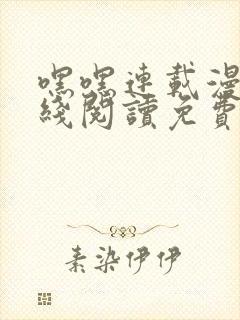 嘿嘿連載漫
綫閱讀免費
素染伊伊